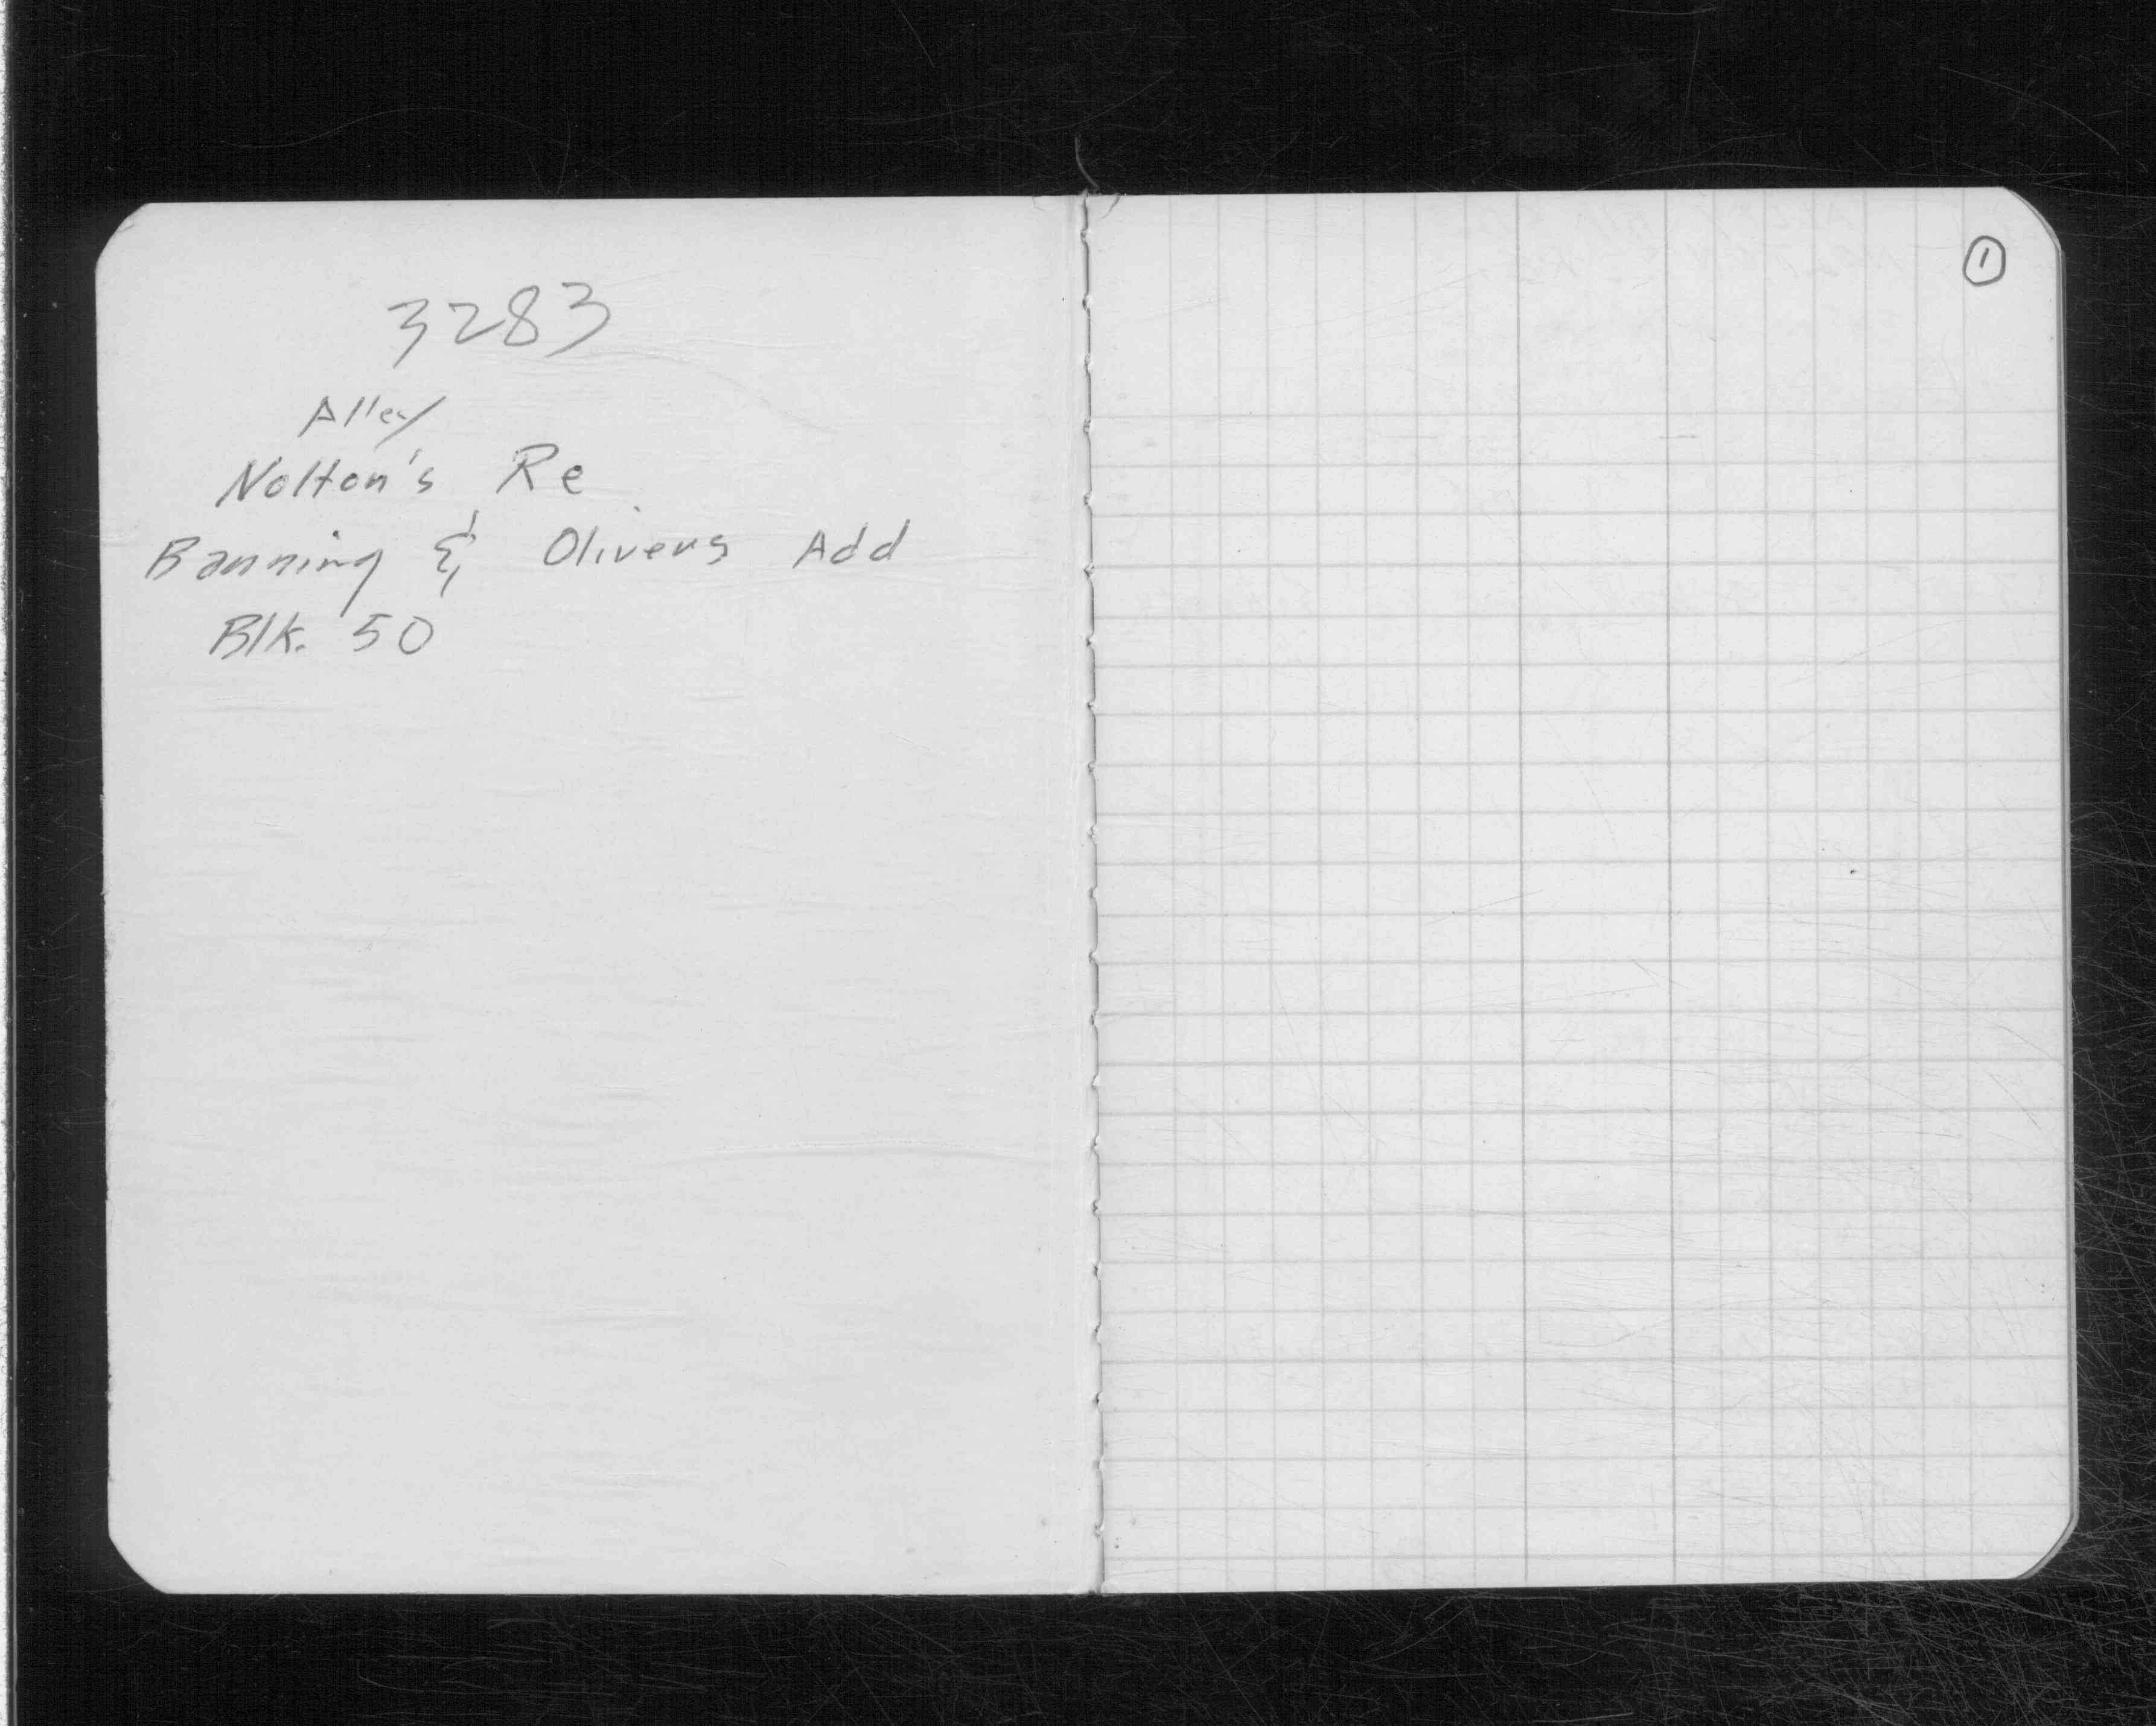 3283
Alley
Nolton's Re
Banning & Olivers Add
Blk. 50
1